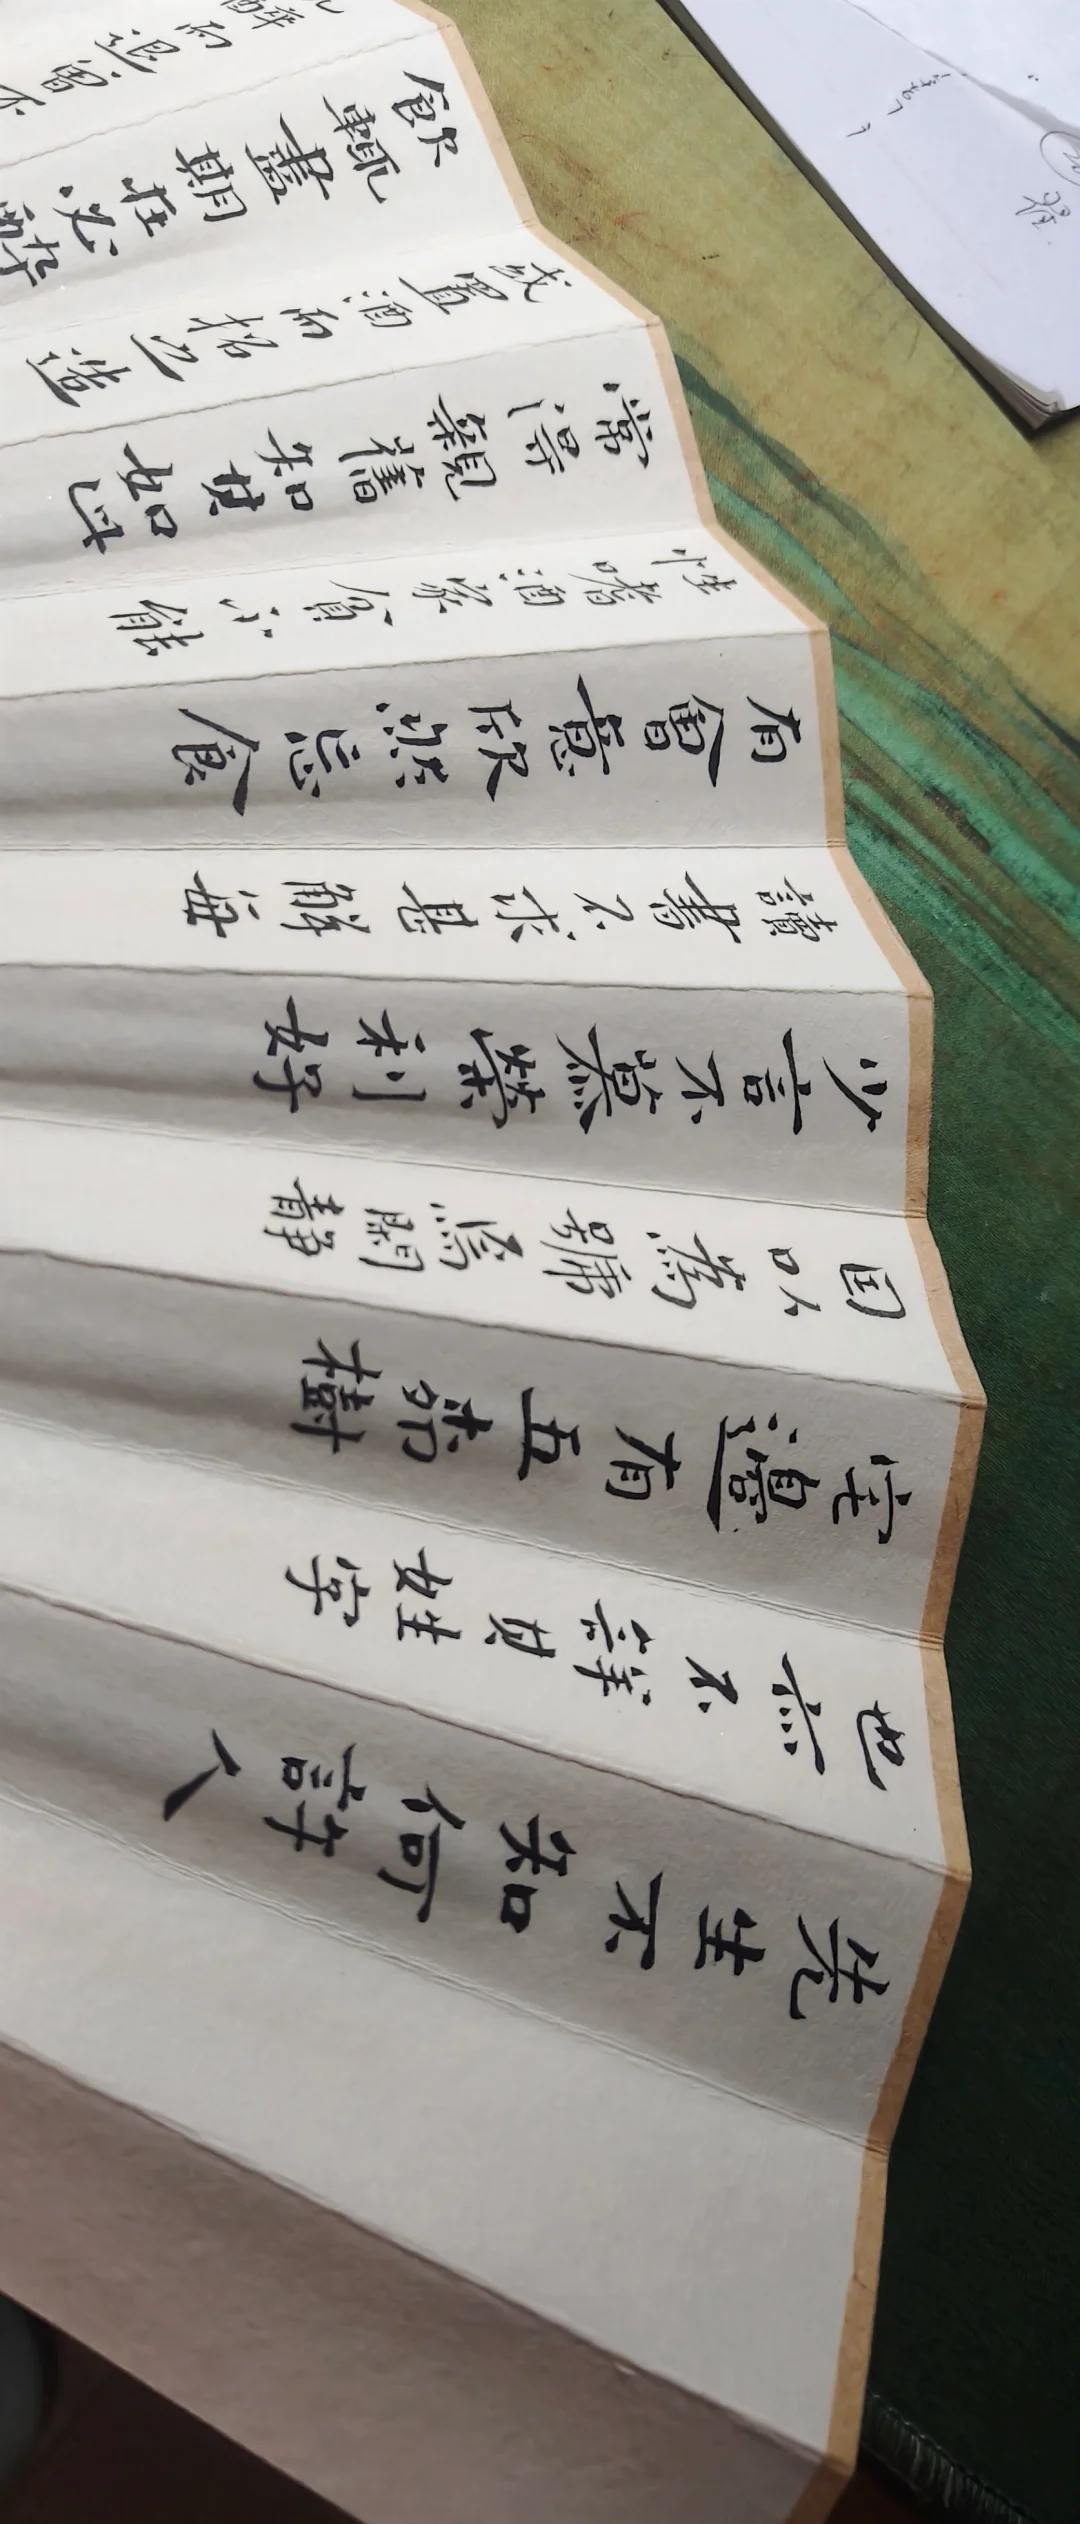 先生不知何許人
也亦不詳其姓字
宅邊有五柳樹
因以為號焉閒靜
少言不慕榮利好
讀書不求甚解每
有會意欣然忘食
性嗜酒家貧不能
常得親舊知其如此
或置酒而招之造
飲輒盡期在必醉
醉而退曾不